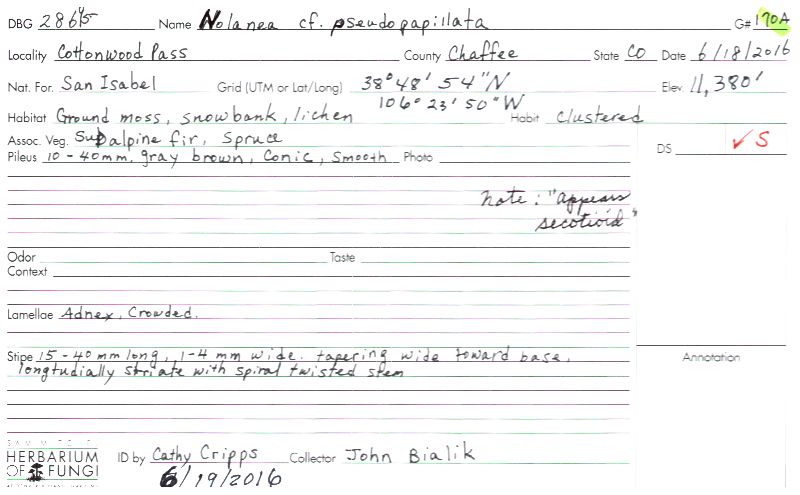 DBG 28645 Name Nolanea cf. pseudopapillata G# 170A
Locality Cottonwood Pass County Chaffee State CO Date 6/18/2016
Nat. For. San Isabel Grid (UTM or Lat/Long) 38°48' 54"N Elev. 11,380'
106° 23' 50"W
Habitat Ground moss, snowbank, lichen Habit Clustered
Assoc. Veg. Subalpine fir, Spruce DS ✓S
Pileus 10-40mm, gray brown, Conic, Smooth Photo
note: "appears
secotioid"
Odor Taste
Context
Lamellae Adnex, Crowded.
Stipe 15-40mm long, 1-4 mm wide. tapering wide toward base, Annotation
longtudially striate with spiral twisted stem
HERBARIUM
OF FUNGI
ID by Cathy Cripps Collector John Bialik
6/19/2016